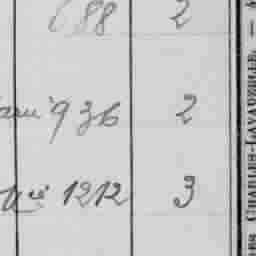 688 2
936 2
1212 3
CHARLES-LAVAUZELLE. —